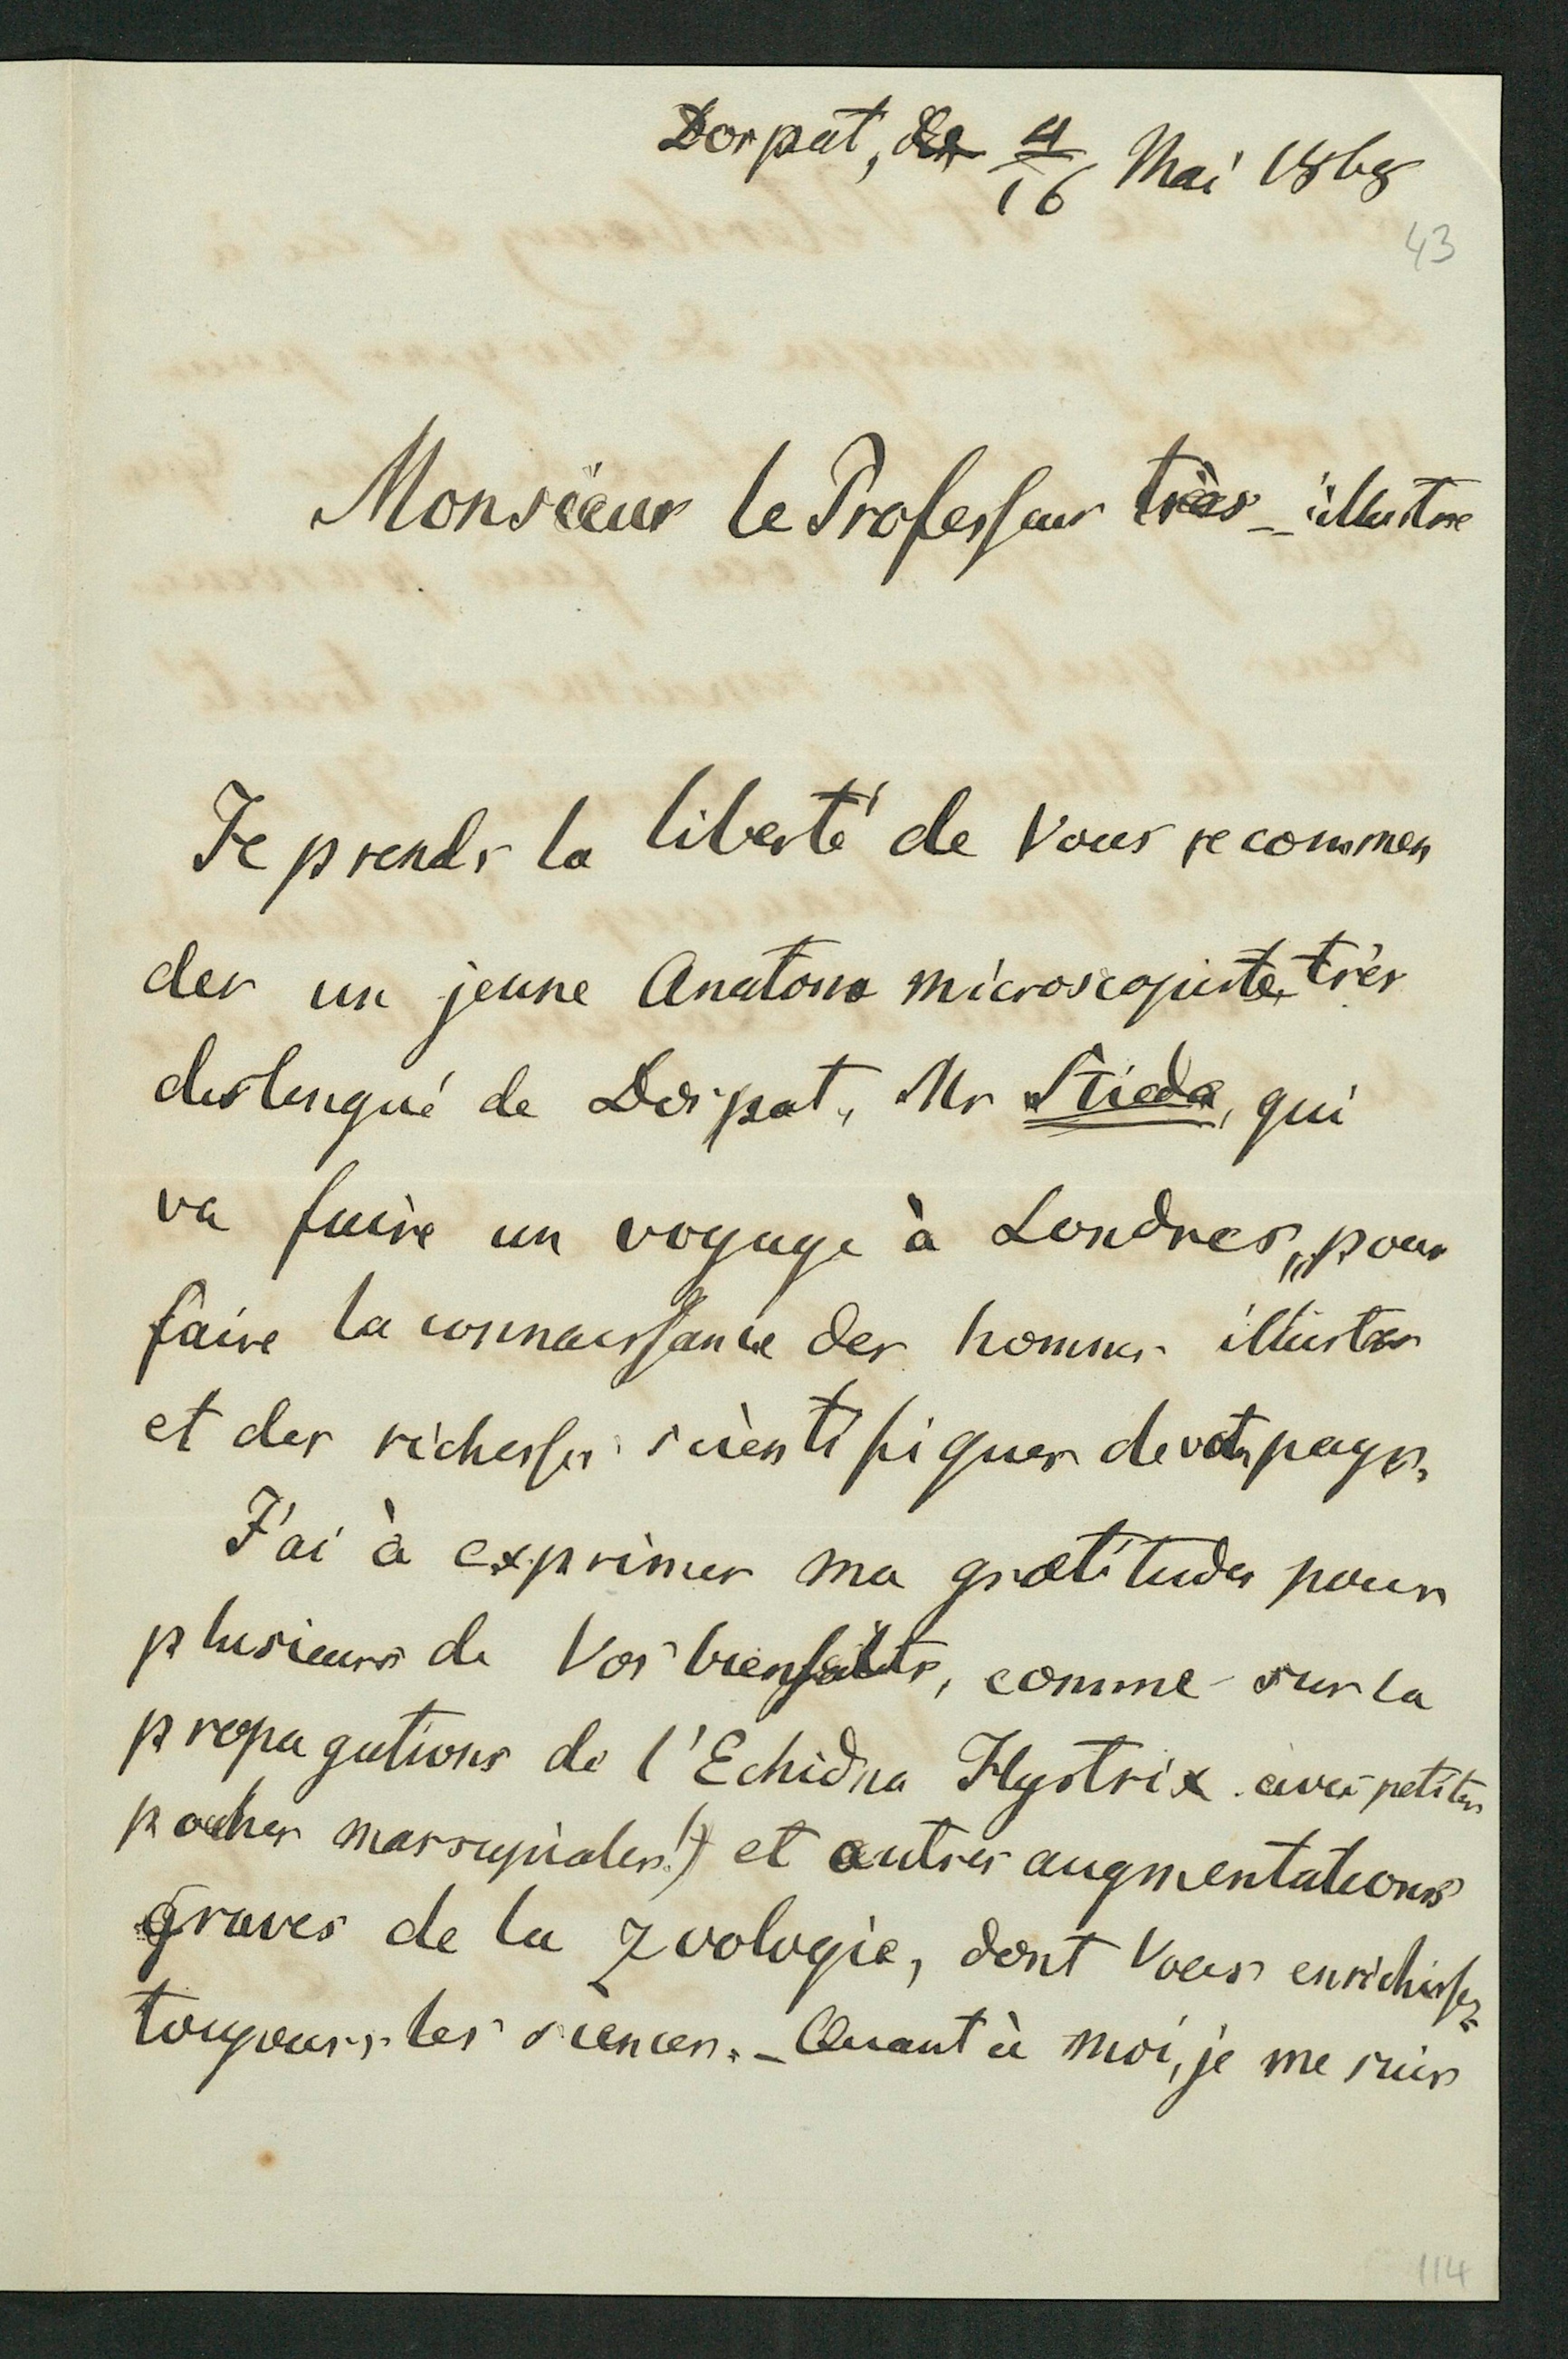 Dorpat, 4/16 Mai 1868
43
Monsieur le Professeur très-illustre
Je prends la liberté de Vous recommen
der un jeune Anatome microscopiste très
destingué de Dorpat, Mr Stieda, qui
va faire un voyage à Londres, pour
faire la connaissance des hommes illustres
et des richesses scientifiques de votre pays.
J'ai à exprimer ma gratitude pour
plusieurs de Vos bienfaits, comme sur la
propagations de l'Echidna Hystrix avec petites
poches marsupiales!) et autres augmentations
graves de la zoologie, dont Vous enrichissez
toujours les siences. - Quant à moi, je me suis
114